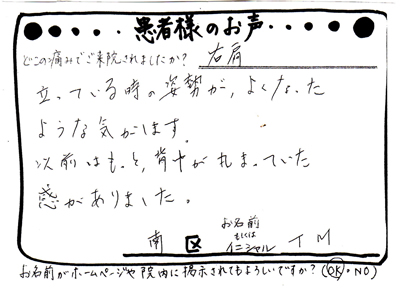 患者様のお声
どこの痛みでご来院されましたか? 右肩
立っている時の姿勢が、よくなった
ような気がします。
以前はもっと、背中がれまっていた
感がありました。
南 区 お名前 もしくは イニシャル T M
お名前がホームページや院内に掲示されてもよろしいですか?(OK・NO)